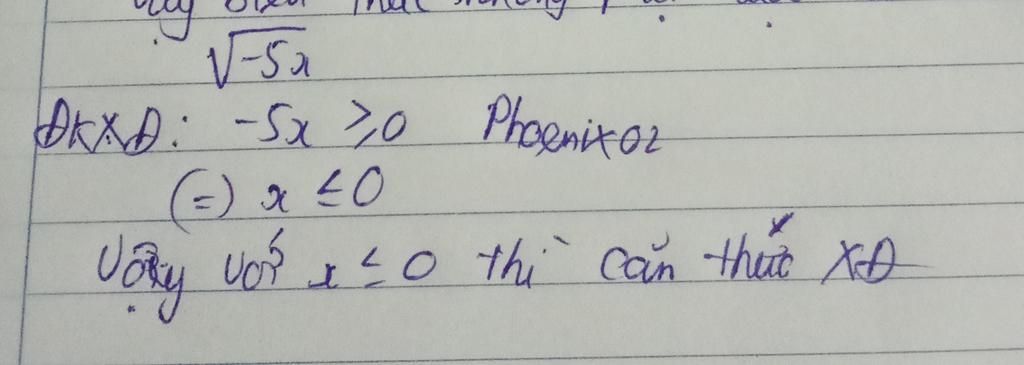 √-5x
ĐKXĐ: -5x ≥ 0 Phoenix02
(=) x ≤ 0
Vậy với x ≤ 0 thì căn thức XĐ